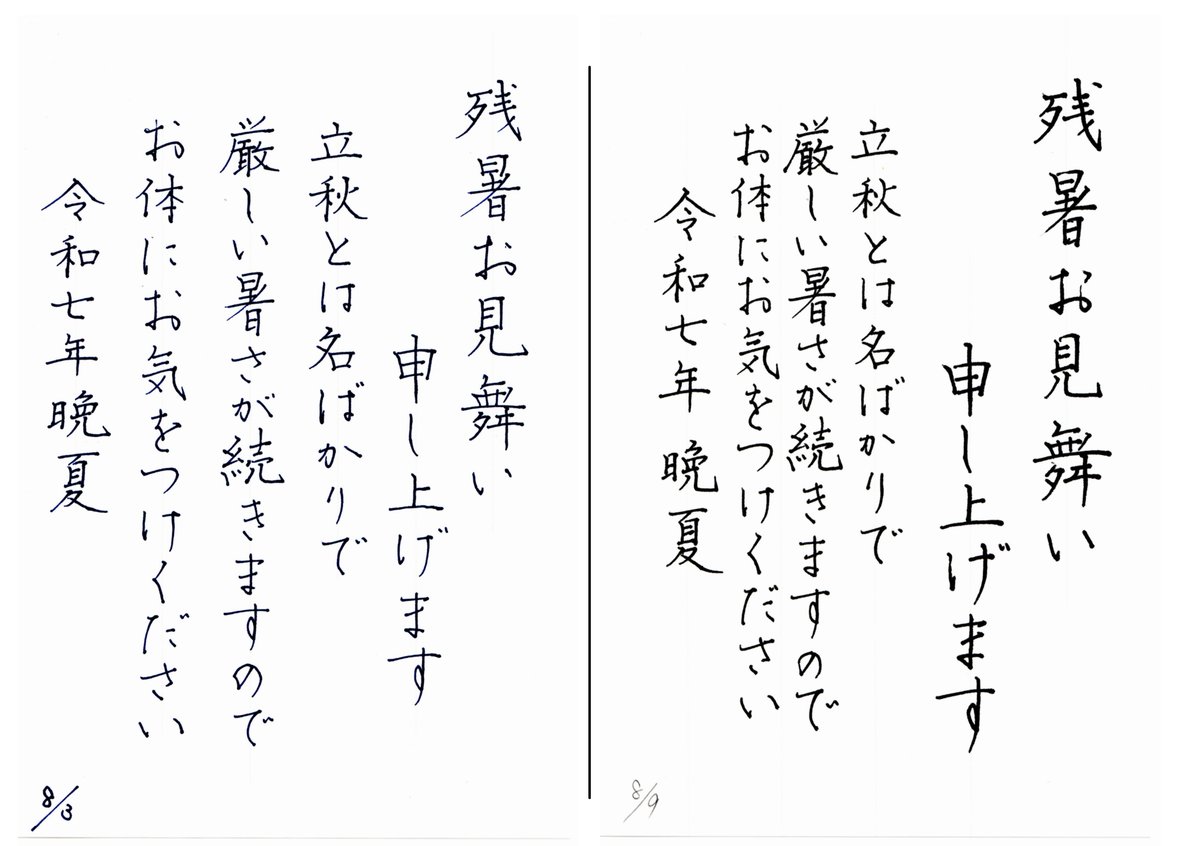 残暑お見舞い
申し上げます
立秋とは名ばかりで
厳しい暑さが続きますので
お体にお気をつけください
令和七年晩夏
8/3
残暑お見舞い
申し上げます
立秋とは名ばかりで
厳しい暑さが続きますので
お体にお気をつけください
令和七年晩夏
8/9